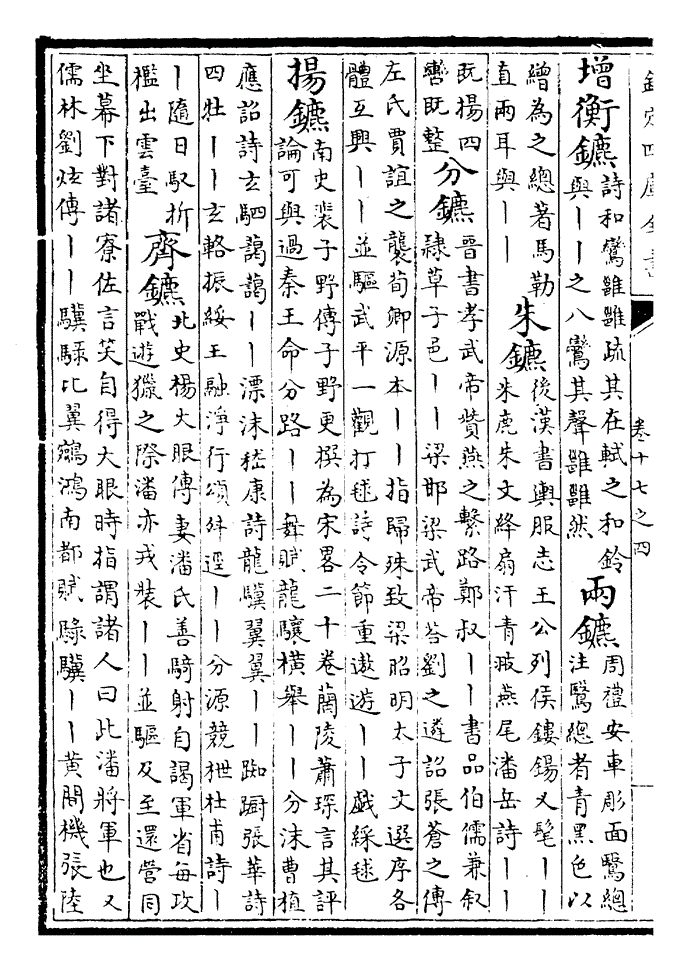 欽定四庫全書
卷十七之四
增衡鑣
詩和鸞雝雝疏其在軾之和鈴
與丨丨之八鸞其聲雝雝然
兩鑣
周禮安車彫面鷖總
注鷖總者青黑色以
繒為之總著馬勒
直兩耳與丨丨
朱鑣
後漢書輿服志王公列侯鏤鍚文髦丨丨
朱鹿朱文絳扇汗青翅燕尾潘岳詩丨丨
既揚四
轡既整
分鑣
晉書孝武帝贊燕之繫路鄭叔丨丨書品伯儒兼叙
隸草子邑丨丨梁邯梁武帝荅劉之遴詔張蒼之傳
左氏賈誼之襲荀卿源本丨丨指歸殊致梁昭明太子文選序各
體互興丨丨並驅武平一觀打毬詩令節重遨遊丨丨戲綵毬
揚鑣
南史裴子野傳子野更撰為宋畧二十卷蘭陵蕭琛言其評
論可與過秦王命分路丨丨舞賦龍驤橫舉丨丨分沫曹植
應詔詩玄駟藹藹丨丨漂沫嵇康詩龍驥翼翼丨丨踟躕張華詩
四牡丨丨玄輅振綏王融淨行頌舛逕丨丨分源競泄杜甫詩丨
丨隨日馭折
檻出雲臺
齊鑣
北史楊大眼傳妻潘氏善騎射自謁軍省每攻
戰遊獵之際潘亦戎裝丨丨並驅及至還營同
坐幕下對諸寮佐言笑自得大眼時指謂諸人曰此潘將軍也又
儒林劉炫傳丨丨驥騄比翼鵷鴻南都賦騄驥丨丨黃閒機張陸